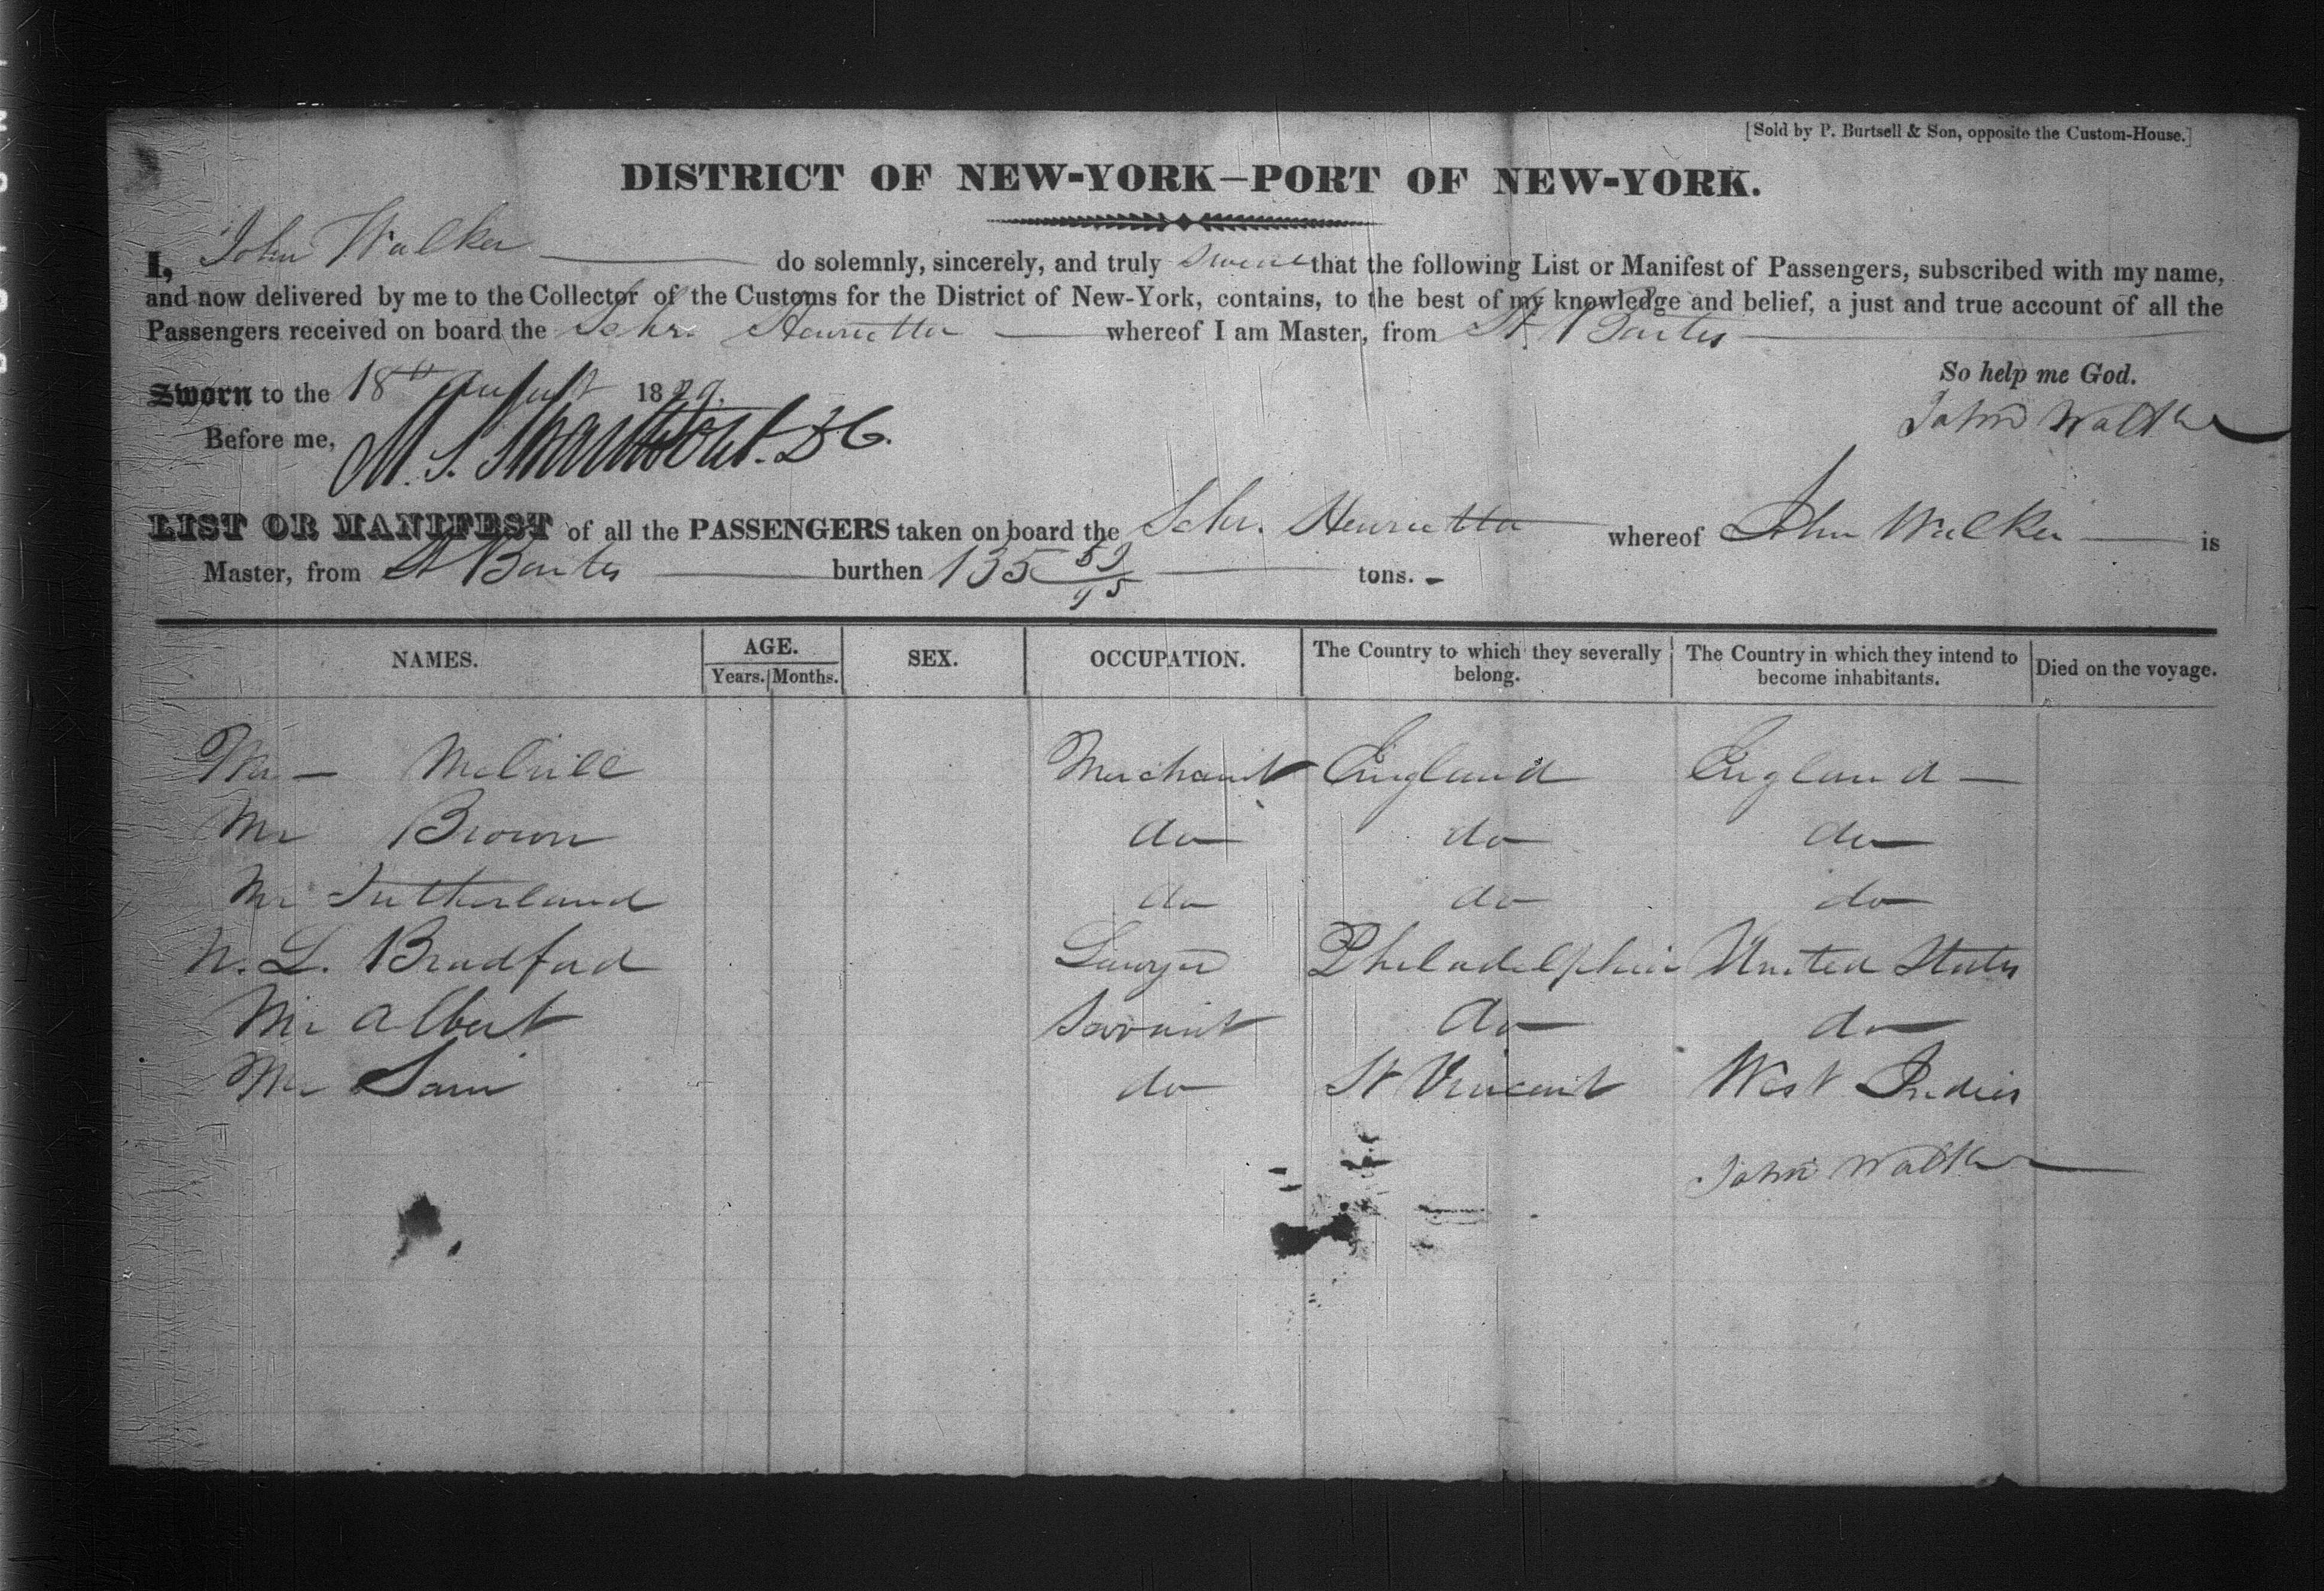 [Sold by P. Burtsell & Son, opposite the Custom-House.]
DISTRICT OF NEW-YORK—PORT OF NEW-YORK.
I, John Walker do solemnly, sincerely, and truly swear that the following List or Manifest of Passengers, subscribed with my name,
and now delivered by me to the Collector of the Customs for the District of New-York, contains, to the best of my knowledge and belief, a just and true account of all the
Passengers received on board the Schr. Henrietta whereof I am Master, from St. Bartes
So help me God.
Sworn to the 18th August 1829.
John Walker
Before me, M. S. Swartwout. D C.
LIST OR MANIFEST of all the PASSENGERS taken on board the Schr. Henrietta whereof John Walker is
Master, from St Bartes burthen 135 59/95 tons.
NAMES. AGE. Years. Months. SEX. OCCUPATION. The Country to which they severally belong. The Country in which they intend to become inhabitants. Died on the voyage.
Mr — Melvill Merchant England England —
Mr Brown do do do
Mr Sutherland do do do
L. Bradford Lawyer Philadelphia United States
Mr Albert Servant do do
Mr Sam do St Vincent West Indies
John Walker